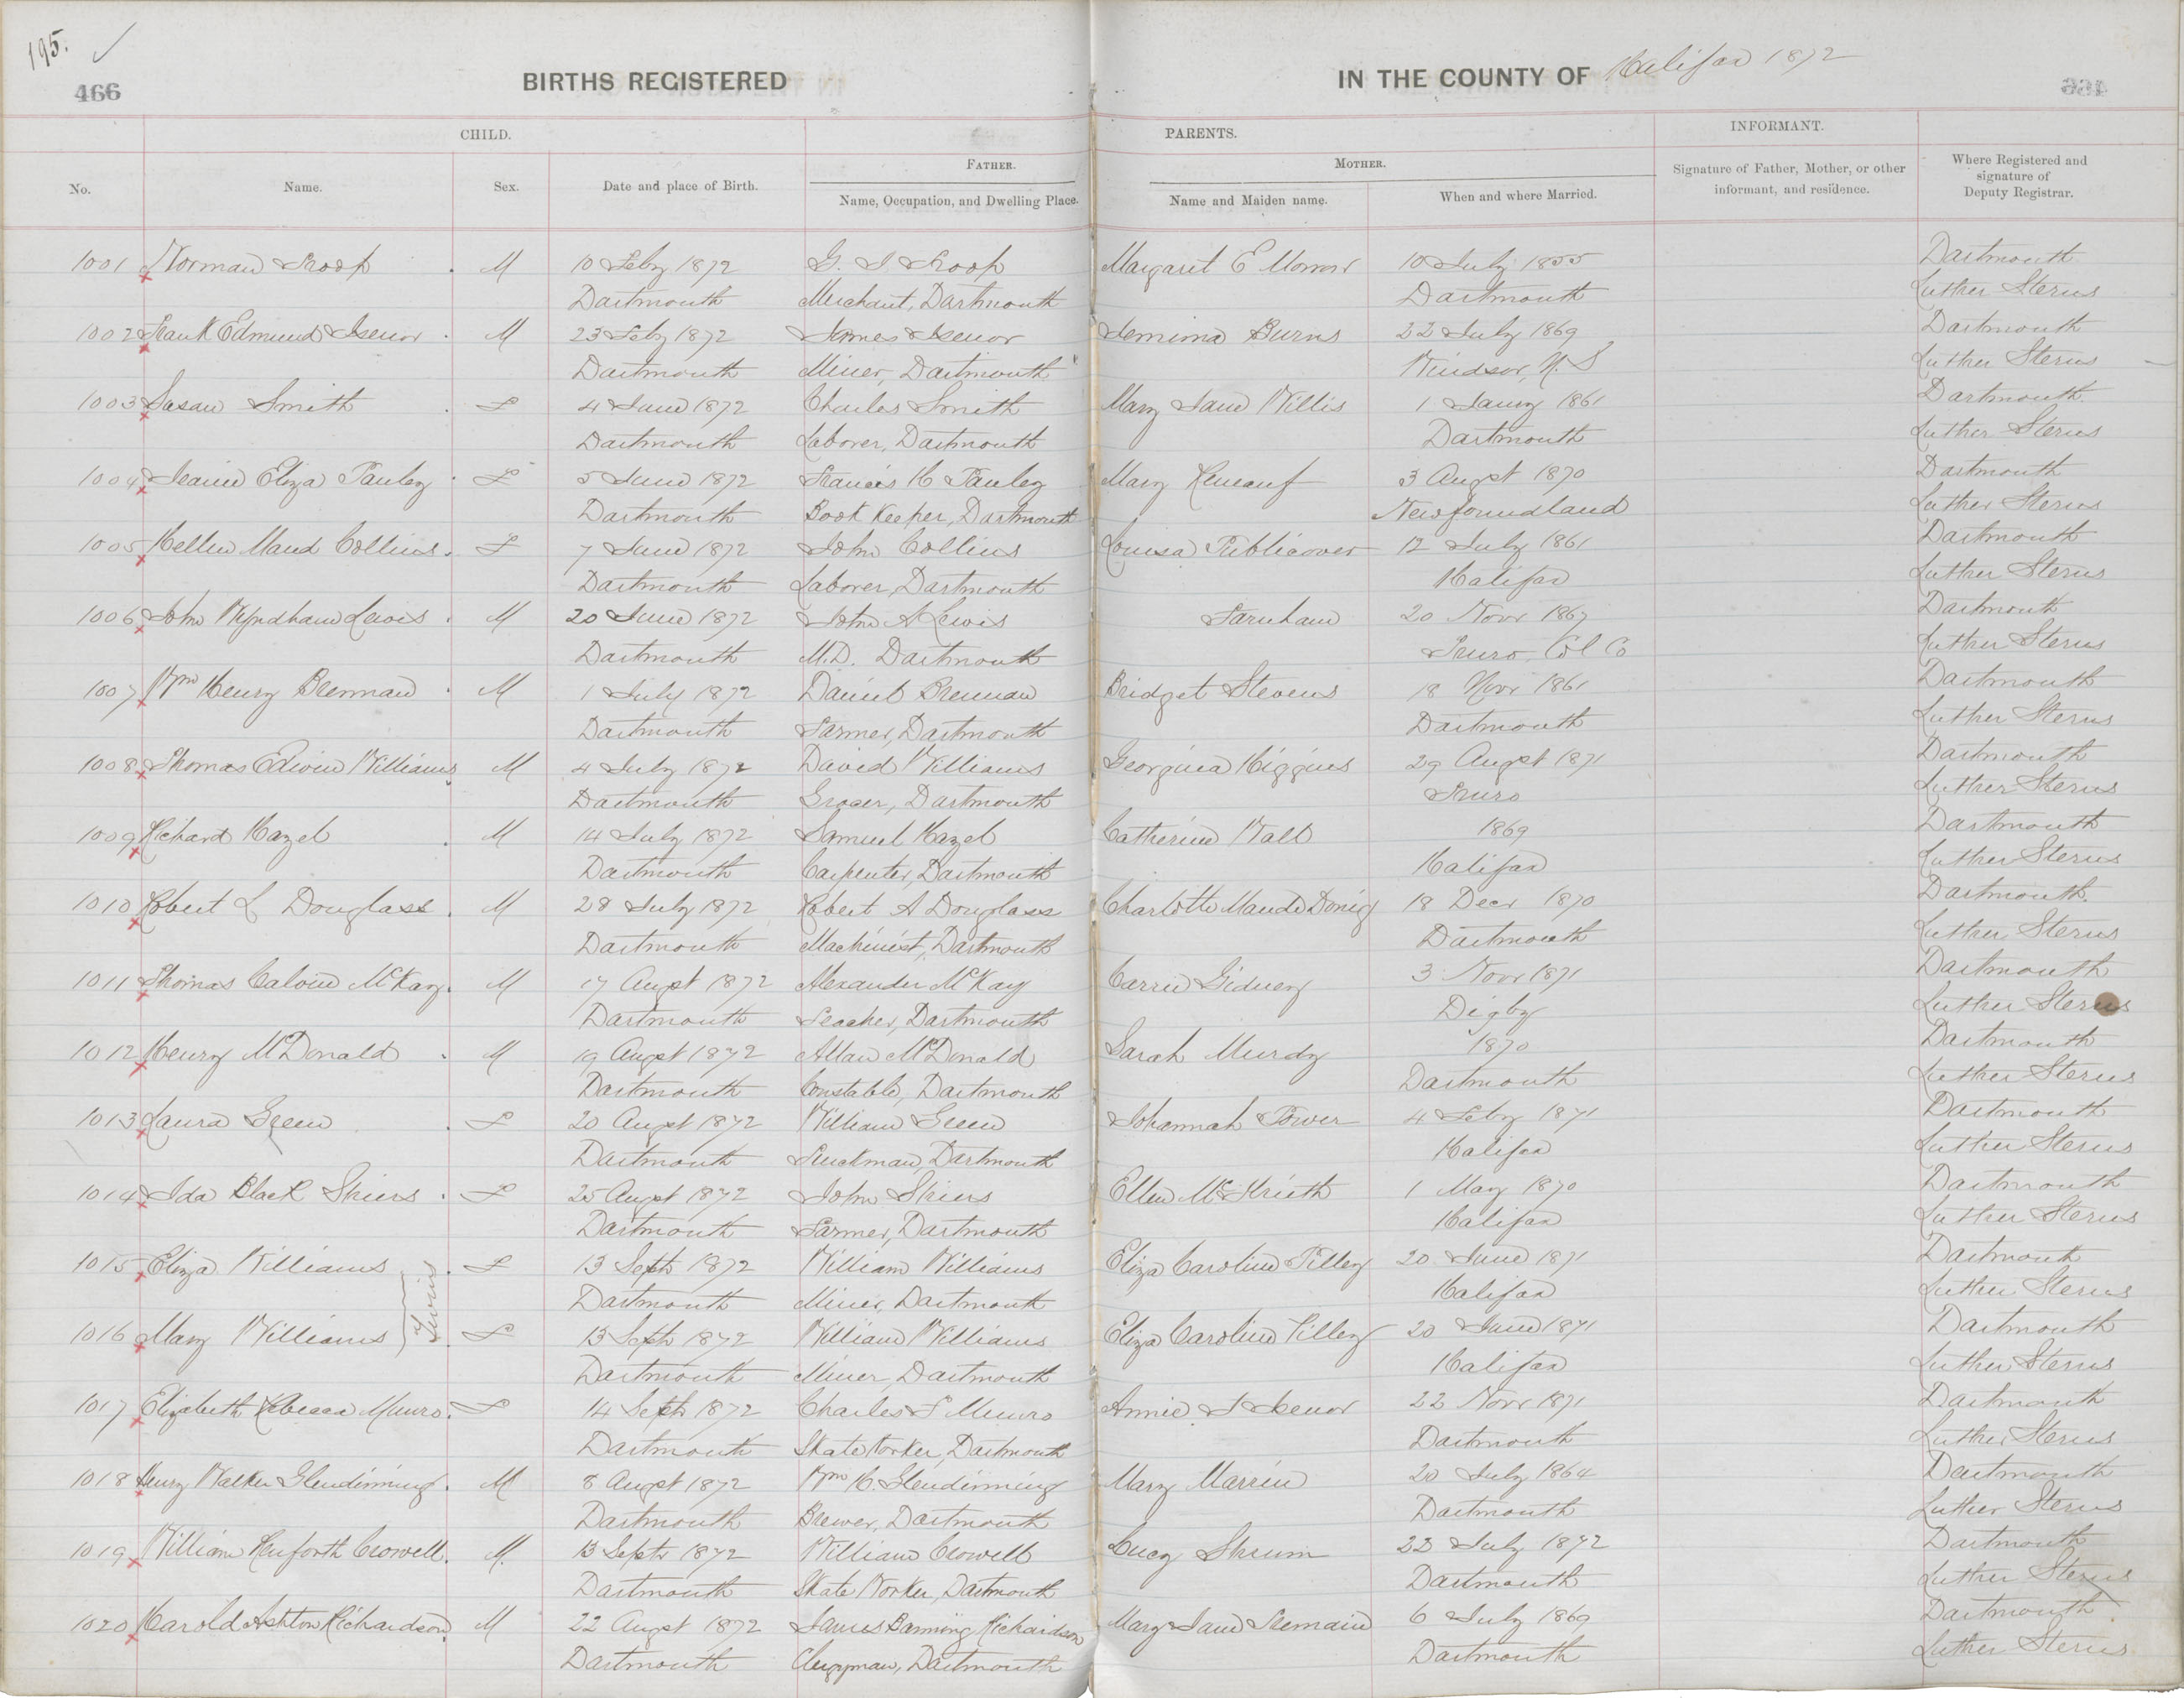 195. ✓
466
BIRTHS REGISTERED IN THE COUNTY OF Halifax 1872
CHILD. PARENTS. INFORMANT.
FATHER. MOTHER.
No. Name. Sex. Date and place of Birth. Name, Occupation, and Dwelling Place. Name and Maiden name. When and where Married. Signature of Father, Mother, or other informant, and residence. Where Registered and signature of Deputy Registrar.
1001 Norman Troop M 10 Feby 1872 G. J Troop Margaret E 10 July 1855 Dartmouth
Dartmouth Merchant, Dartmouth Dartmouth Luther Sterns
1002 Frank Edmund Isenor M 23 Feby 1872 James Isenor Jemima Burns 22 July 1869 Dartmouth
Dartmouth Miner, Dartmouth Windsor, N. S Luther Sterns
1003 Susan Smith F 4 June 1872 Charles Smith Mary Jane Willis 1 Jany 1861 Dartmouth
Dartmouth Laborer, Dartmouth Dartmouth Luther Sterns
1004 Eliza Pauley F 5 June 1872 Francis H Pauley Mary 3 Augst 1870 Dartmouth
Dartmouth Book Keeper, Dartmouth Newfoundland Luther Sterns
1005 Hellen Maud Collins F 7 June 1872 John Collins Louisa Publicover 12 July 1861 Dartmouth
Dartmouth Laborer, Dartmouth Halifax Luther Sterns
1006 John Wyndham Lewis M 20 June 1872 John A Lewis Farnham 20 Novr 1867 Dartmouth
Dartmouth M.D. Dartmouth Truro Col Co Luther Sterns
1007 Wm Henry Brennan M 1 July 1872 Daniel Brennan Bridget Stevens 18 Novr 1861 Dartmouth
Dartmouth Farmer, Dartmouth Dartmouth Luther Sterns
1008 Thomas Edwin Williams M 4 July 1872 David Williams Georgina Higgins 29 Augst 1871 Dartmouth
Dartmouth Grocer, Dartmouth Truro Luther Sterns
1009 Richard Hazel M 14 July 1872 Samuel Hazel Catherine Wall 1869 Dartmouth
Dartmouth Carpenter, Dartmouth Halifax Luther Sterns
1010 Robert L Douglass M 28 July 1872 Robert A Douglass Charlotte Maude 18 Decr 1870 Dartmouth
Dartmouth Machinist, Dartmouth Dartmouth Luther Sterns
1011 Thomas Calvin McKay M 17 Augst 1872 Alexander McKay Carrie Gidney 3 Novr 1871 Dartmouth
Dartmouth Teacher, Dartmouth Digby Luther Sterns
1012 Henry McDonald M 19 Augst 1872 Allan McDonald Sarah Murdy 1870 Dartmouth
Dartmouth Constable, Dartmouth Dartmouth Luther Sterns
1013 Laura Green F 20 Augst 1872 William Green Johannah Power 4 Feby 1871 Dartmouth
Dartmouth Truckman, Dartmouth Halifax Luther Sterns
1014 Ida Black Skiers F 25 Augst 1872 John Skiers Ellen 1 May 1870 Dartmouth
Dartmouth Farmer, Dartmouth Halifax Luther Sterns
1015 Eliza Williams F 13 Septr 1872 William Williams Eliza Caroline Pilley 20 June 1871 Dartmouth
Twins
Dartmouth Miner, Dartmouth Halifax Luther Sterns
1016 Mary Williams F 13 Septr 1872 William Williams Eliza Caroline Pilley 20 June 1871 Dartmouth
Dartmouth Miner, Dartmouth Halifax Luther Sterns
1017 Elizabeth Rebecca Munro F 14 Septr 1872 Charles F Munro Annie J Isenor 22 Novr 1871 Dartmouth
Dartmouth Skate Worker, Dartmouth Dartmouth Luther Sterns
1018 Henry Walker Glendinning M 8 Augst 1872 Wm C. Glendinning Mary Marrin 20 July 1864 Dartmouth
Dartmouth Brewer, Dartmouth Dartmouth Luther Sterns
1019 William Renforth Crowell M. 13 Septr 1872 William Crowell Lucy Shrum 23 July 1872 Dartmouth
Dartmouth Skate Worker, Dartmouth Dartmouth Luther Sterns
1020 Harold Ashton Richardson M 22 Augst 1872 James Banning Richardson Mary Jane Tremain 6 July 1869 Dartmouth
Dartmouth Clergyman, Dartmouth Dartmouth Luther Sterns